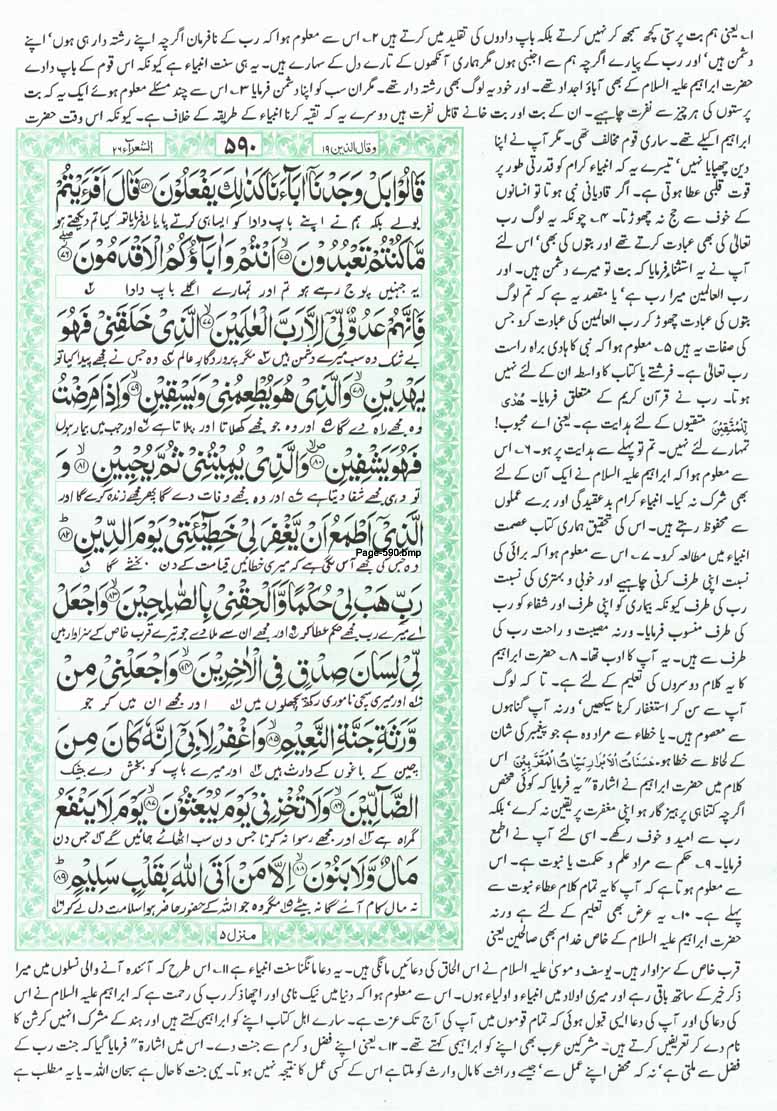 ۱۔ یعنی ہم بت پرستی کچھ سمجھ کر نہیں کرتے بلکہ باپ دادوں کی تقلید میں کرتے ہیں ۲۔ اس سے معلوم ہوا کہ رب کے نافرمان اگرچہ اپنے رشتہ دار ہی ہوں' اپنے
دشمن ہیں' اور رب کے پیارے اگرچہ ہم سے اجنبی ہوں مگر ہماری آنکھوں کے تارے دل کے سہارے ہیں۔ یہ ہی سنت انبیاء ہے کیونکہ اس قوم کے باپ دادے
حضرت ابراہیم علیہ السلام کے بھی آباؤ اجداد تھے۔ اور خود یہ لوگ بھی رشتہ دار تھے۔ مگر ان سب کو اپنا دشمن فرمایا ۳۔ اس سے چند مسئلے معلوم ہوئے ایک یہ کہ بت
پرستوں کی ہر چیز سے نفرت چاہیے۔ ان کے بت اور بت خانے قابل نفرت ہیں دوسرے یہ کہ تقیہ کرنا انبیاء کے طریقہ کے خلاف ہے۔ کیونکہ اس وقت حضرت
ابراہیم اکیلے تھے۔ ساری قوم مخالف تھی۔ مگر آپ نے اپنا
دین چھپایا نہیں' تیسرے یہ کہ انبیاء کرام کو قدرتی طور پر
قوت قلبی عطا ہوتی ہے۔ اگر قادیانی نبی ہوتا تو انسانوں
کے خوف سے حج نہ چھوڑتا۔ ۴۔ چونکہ یہ لوگ رب
تعالیٰ کی بھی عبادت کرتے تھے اور بتوں کی بھی' اس لئے
آپ نے یہ استثنا فرمایا کہ بت تو میرے دشمن ہیں۔ اور
رب العالمین میرا رب ہے' یا مقصد یہ ہے کہ تم لوگ
بتوں کی عبادت چھوڑ کر رب العالمین کی عبادت کرو جس
کی صفات یہ ہیں ۵۔ معلوم ہوا کہ نبی کا ہادی براہ راست
رب تعالیٰ ہے۔ فرشتے یا کتاب کا واسطہ ان کے لئے نہیں
ہوتا۔ رب نے قرآن کریم کے متعلق فرمایا۔ هُدًى
لِّلْمُتَّقِيْنَ متقیوں کے لئے ہدایت ہے۔ یعنی اے محبوب!
تمہارے لئے نہیں۔ تم تو پہلے سے ہدایت پر ہو۔ ۶۔ اس
سے معلوم ہوا کہ ابراہیم علیہ السلام نے ایک آن کے لئے
بھی شرک نہ کیا۔ انبیاء کرام بدعقیدگی اور برے عملوں
سے محفوظ رہتے ہیں۔ اس کی تحقیق ہماری کتاب عصمت
انبیاء میں مطالعہ کرو۔ ۷۔ اس سے معلوم ہوا کہ برائی کی
نسبت اپنی طرف کرنی چاہیے اور خوبی و بہتری کی نسبت
رب کی طرف کیونکہ بیماری کو اپنی طرف اور شفاء کو رب
کی طرف منسوب فرمایا۔ ورنہ مصیبت و راحت رب کی
طرف سے ہیں۔ یہ آپ کا ادب تھا۔ ۸۔ حضرت ابراہیم
کا یہ کلام دوسروں کی تعلیم کے لئے ہے۔ تا کہ لوگ
آپ سے سن کر استغفار کرنا سیکھیں' ورنہ آپ گناہوں
سے معصوم ہیں۔ یا خطاء سے مراد وہ ہے جو پیغمبر کی شان
کے لحاظ سے خطا ہو۔ حَسَنَاتُ الْاَبْرَارِ سَيِّاٰتُ الْمُقَرَّبِيْنَ اس
کلام میں حضرت ابراہیم نے اشارۃ" یہ فرمایا کہ کوئی شخص
اگرچہ کتنا ہی پرہیز گار ہو اپنی مغفرت پر یقین نہ کرے' بلکہ
رب سے امید و خوف رکھے۔ اسی لئے آپ نے اطمع
فرمایا۔ ۹۔ حکم سے مراد علم و حکمت یا نبوت ہے۔ اس
سے معلوم ہوتا ہے کہ آپ کا یہ تمام کلام عطاء نبوت سے
پہلے ہے۔ ۱۰۔ یہ عرض بھی تعلیم کے لئے ہے ورنہ
حضرت ابراہیم علیہ السلام کے خاص خدام بھی صالحین یعنی
وقال الذین ۱۹
۵۹۰
الشعراء ۲۶
قَالُوْا بَلْ وَجَدْنَآ اٰبَآءَنَا كَذٰلِكَ يَفْعَلُوْنَ ﴿۷۴﴾ قَالَ اَفَرَءَيْتُمْ
بولے بلکہ ہم نے اپنے باپ دادا کو ایسا ہی کرتے پایا ف۱ فرمایا تو کیا تم دیکھتے ہو
مَّا كُنْتُمْ تَعْبُدُوْنَ ﴿۷۵﴾ اَنْتُمْ وَاٰبَآؤُكُمُ الْاَقْدَمُوْنَ ﴿۷۶﴾
یہ جنہیں پوج رہے ہو تم اور تمہارے اگلے باپ دادا ف۲
فَاِنَّهُمْ عَدُوٌّ لِّيْٓ اِلَّا رَبَّ الْعٰلَمِيْنَ ﴿۷۷﴾ الَّذِيْ خَلَقَنِيْ فَهُوَ
بے شک وہ سب میرے دشمن ہیں ف۳ مگر پروردگار عالم ف۴ وہ جس نے مجھے پیدا کیا تو
يَهْدِيْنِ ﴿۷۸﴾ وَالَّذِيْ هُوَ يُطْعِمُنِيْ وَيَسْقِيْنِ ﴿۷۹﴾ وَاِذَا مَرِضْتُ
وہ مجھے راہ دے گا ف۵ اور وہ جو مجھے کھلاتا اور پلاتا ہے ف۶ اور جب میں بیمار ہوں
فَهُوَ يَشْفِيْنِ ﴿۸۰﴾ وَالَّذِيْ يُمِيْتُنِيْ ثُمَّ يُحْيِيْنِ ﴿۸۱﴾ وَ
تو وہی مجھے شفا دیتا ہے ف۷ اور وہ مجھے وفات دے گا پھر مجھے زندہ کرے گا اور
الَّذِيْٓ اَطْمَعُ اَنْ يَّغْفِرَ لِيْ خَطِيْٓئَتِيْ يَوْمَ الدِّيْنِ ﴿۸۲﴾
وہ جس کی مجھے آس لگی ہے کہ میری خطائیں قیامت کے دن بخشے گا ف۸
Page-590.bmp
رَبِّ هَبْ لِيْ حُكْمًا وَّاَلْحِقْنِيْ بِالصّٰلِحِيْنَ ﴿۸۳﴾ وَاجْعَلْ
اے میرے رب مجھے حکم عطا کر ف۹ اور مجھے ان سے ملا دے جو تیرے قرب خاص کے سزاوار ہیں
لِّيْ لِسَانَ صِدْقٍ فِي الْاٰخِرِيْنَ ﴿۸۴﴾ وَاجْعَلْنِيْ مِنْ
ف۱۰ اور میری سچی ناموری رکھ پچھلوں میں ف۱۱ اور مجھے ان میں کر جو
وَّرَثَةِ جَنَّةِ النَّعِيْمِ ﴿۸۵﴾ وَاغْفِرْ لِاَبِيْٓ اِنَّهٗ كَانَ مِنَ
چین کے باغوں کے وارث ہیں ف۱۲ اور میرے باپ کو بخش دے بیشک
الضَّآلِّيْنَ ﴿۸۶﴾ وَلَا تُخْزِنِيْ يَوْمَ يُبْعَثُوْنَ ﴿۸۷﴾ يَوْمَ لَا يَنْفَعُ
گمراہ ہے اور مجھے رسوا نہ کرنا جس دن سب اٹھائے جائیں گے جس دن
مَالٌ وَّلَا بَنُوْنَ ﴿۸۸﴾ اِلَّا مَنْ اَتَى اللّٰهَ بِقَلْبٍ سَلِيْمٍ ﴿۸۹﴾
نہ مال کام آئے گا نہ بیٹے مگر وہ جو اللہ کے حضور حاضر ہوا سلامت دل لے کر
منزل ۵
قرب خاص کے سزاوار ہیں۔ یوسف و موسیٰ علیہ السلام نے اس الحاق کی دعائیں مانگی ہیں۔ یہ دعا مانگنا سنت انبیاء ہے ۱۱۔ اس طرح کہ آئندہ آنے والی نسلوں میں میرا
ذکر خیر کے ساتھ باقی رہے اور میری اولاد میں انبیاء و اولیاء ہوں۔ اس سے معلوم ہوا کہ دنیا میں نیک نامی اور اچھا ذکر رب کی رحمت ہے کہ ابراہیم علیہ السلام نے اس
کی دعا کی اور آپ کی دعا ایسی قبول ہوئی کہ تمام قوموں میں آپ کی آج تک عزت ہے۔ سارے اہل کتاب اپنے کو ابراہیمی کہتے ہیں اور ہند کے مشرک انہیں کرشن کا
نام دے کر تعریفیں کرتے ہیں۔ مشرکین عرب بھی اپنے کو ابراہیمی کہتے تھے۔ ۱۲۔ یعنی اپنے فضل و کرم سے جنت دے۔ اس میں اشارۃ" فرمایا گیا کہ جنت رب کے
فضل سے ملتی ہے' نہ کہ محض اپنے عمل سے' جیسے وراثت کا مال وارث کو ملتا ہے اس کے کسی عمل کا نتیجہ نہیں ہوتا۔ یہی جنت کا حال ہے سبحان اللہ۔ یا یہ مطلب ہے